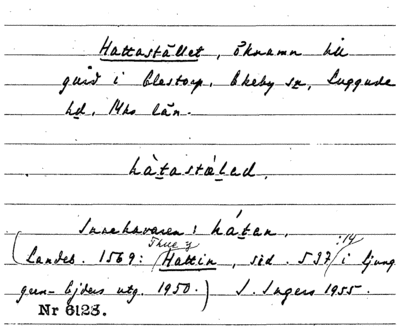 Hattastället, öknamn till
gård i Clestorp, Ekeby sn, Luggude
hd, Mhs län.
hàtastàlad.
Innehavaren: hátan.
(Landeb. 1569: Thue y Hattin, sid. 537:14 i Ljung
gren-Ejders utg. 1950.) I. Ingers 1955.
Nr 6123.